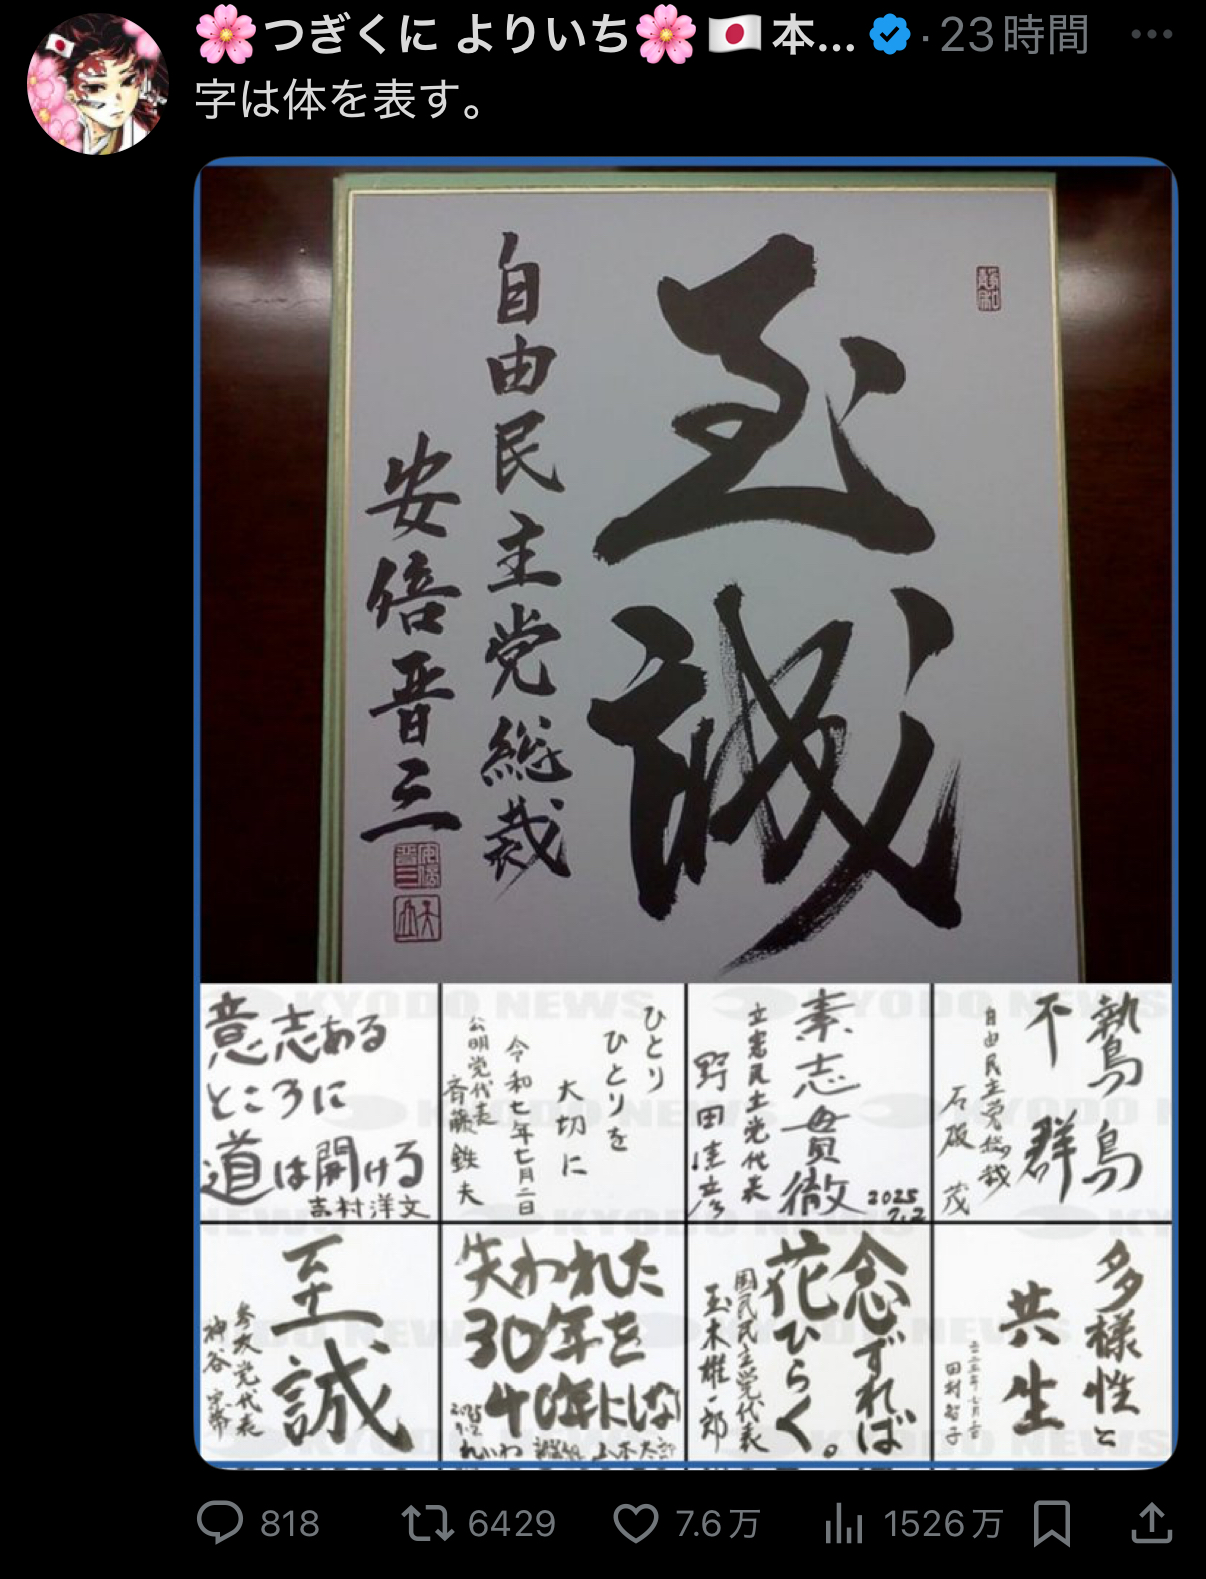 🌸つぎくに よりいち🌸🇯🇵本... · 23時間
字は体を表す。
至誠
自由民主党総裁
安倍晋三
安倍晋三
KYODO NEWS
意志ある
ところに
道は開ける
吉村洋文
ひとり
ひとりを
大切に
令和七年七月二日
公明党代表
斉藤鉄夫
素志貫徹
立憲民主党代表
野田佳彦
2025
7.2
鷙鳥
不群
自由民主党総裁
石破茂
至誠
参政党代表
神谷宗幣
失われた
30年を
40年にしな
2025
7.2
れいわ 新選組 山本太郎
念ずれば
花ひらく。
国民民主党代表
玉木雄一郎
多様性と
共生
二〇二五年七月二日
田村智子
818
6429
7.6万
1526万